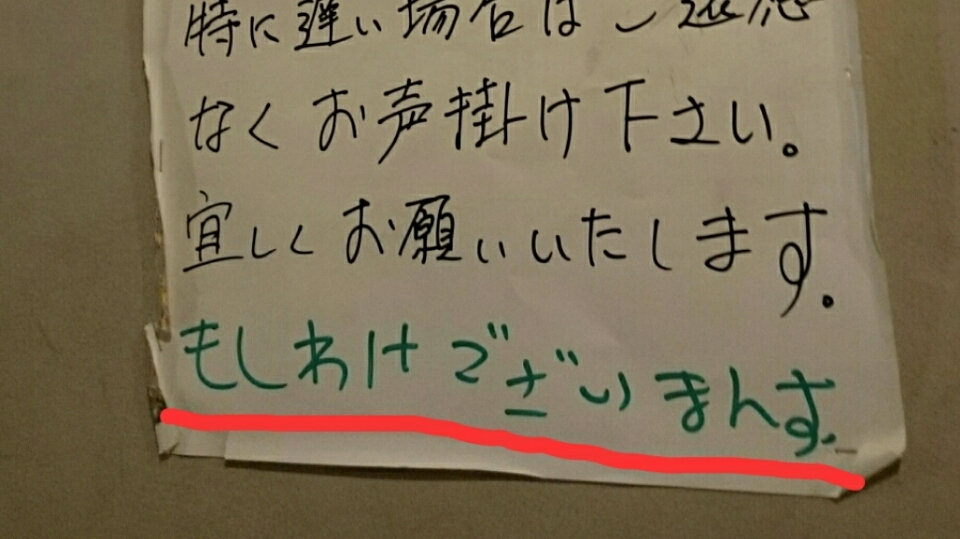 特に遅い場合はご遠慮
なくお声掛け下さい。
宜しくお願いいたします。
もしわけでございまんす。